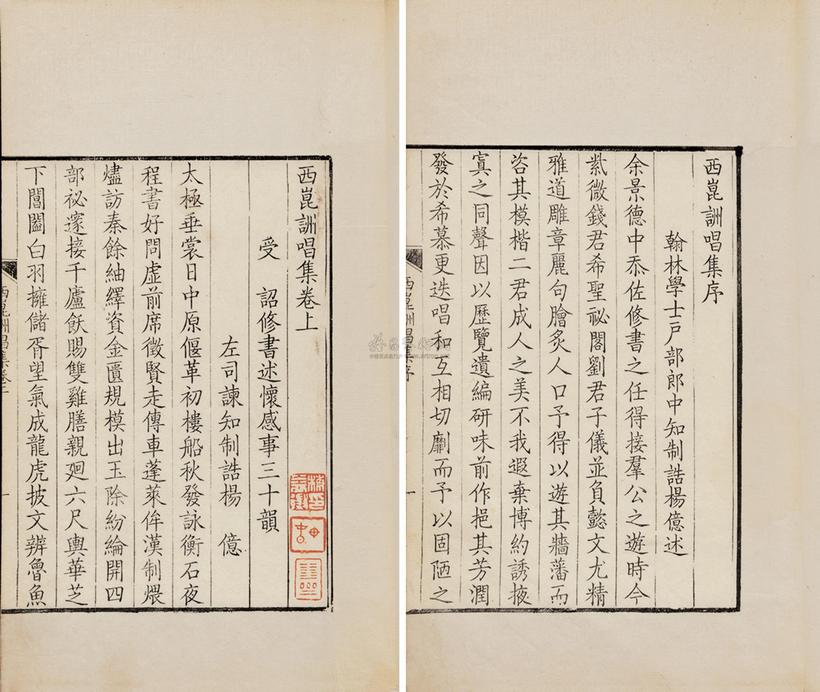 西崑詶唱集序
翰林學士戸部郎中知制誥楊億述
余景德中忝佐修書之任得接羣公之遊時今
紫微錢君希聖祕閣劉君子儀並負懿文尤精
雅道雕章麗句膾炙人口予得以遊其牆藩而
咨其模楷二君成人之美不我遐棄博約誘掖
寘之同聲因以歷覽遺編研味前作挹其芳潤
發於希慕更迭唱和互相切劘而予以固陋之
西崑詶唱集序
一
西崑詶唱集卷上
受　詔修書述懷感事三十韻
左司諫知制誥楊　億
太極垂裳日中原偃革初樓船秋發詠衡石夜
程書好問虛前席徵賢走傳車蓬萊侔漢制煨
燼訪秦餘紬繹資金匱規模出玉除紛綸開四
部祕邃接千廬飫賜雙雞膳親廻六尺輿華芝
下閶闔白羽擁儲胥望氣成龍虎披文辨魯魚